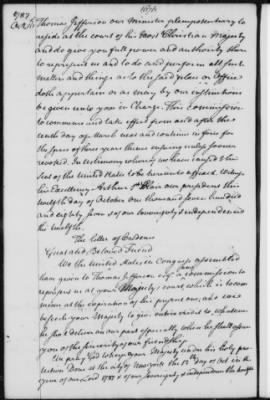 1787
Thomas Jefferson our Minister plenipotentiary to
reside at the court of his Most Christian Majesty
and do give you full power and authority there
to represent us and to do and perform all such
matters and things as to the said place or Office
doth appertain or as may by our instructions
be given unto you in Charge. This Commission
to commence and take effect from and after the
tenth day of March next and continue in force for
the space of three years thence ensuing unless sooner
revoked. In testimony whereof we have caused the
seal of the United States to be hereunto affixed. Witness
his Excellency Arthur St Clair our president this
twelfth day of October one thousand seven hundred
and eighty seven & of our Sovereignty & independence
the twelfth.
The letter of Credence
Great and Beloved Friend
We the United States in Congress assembled
have given to Thomas Jefferson esqr a commission to
represent us at your Majesty's court which is to com
mence at the expiration of his present one, and we
beseech your Majesty to give entire credit to whatever
he shall deliver on our part especially when he shall assure
you of the sincerity of our friendship.
We pray God to keep your Majesty under his holy pro
tection Done at the city of New york the 12th day of Oct in the
year of our Lord 1787 & of our Sovereignty & independence the twelfth